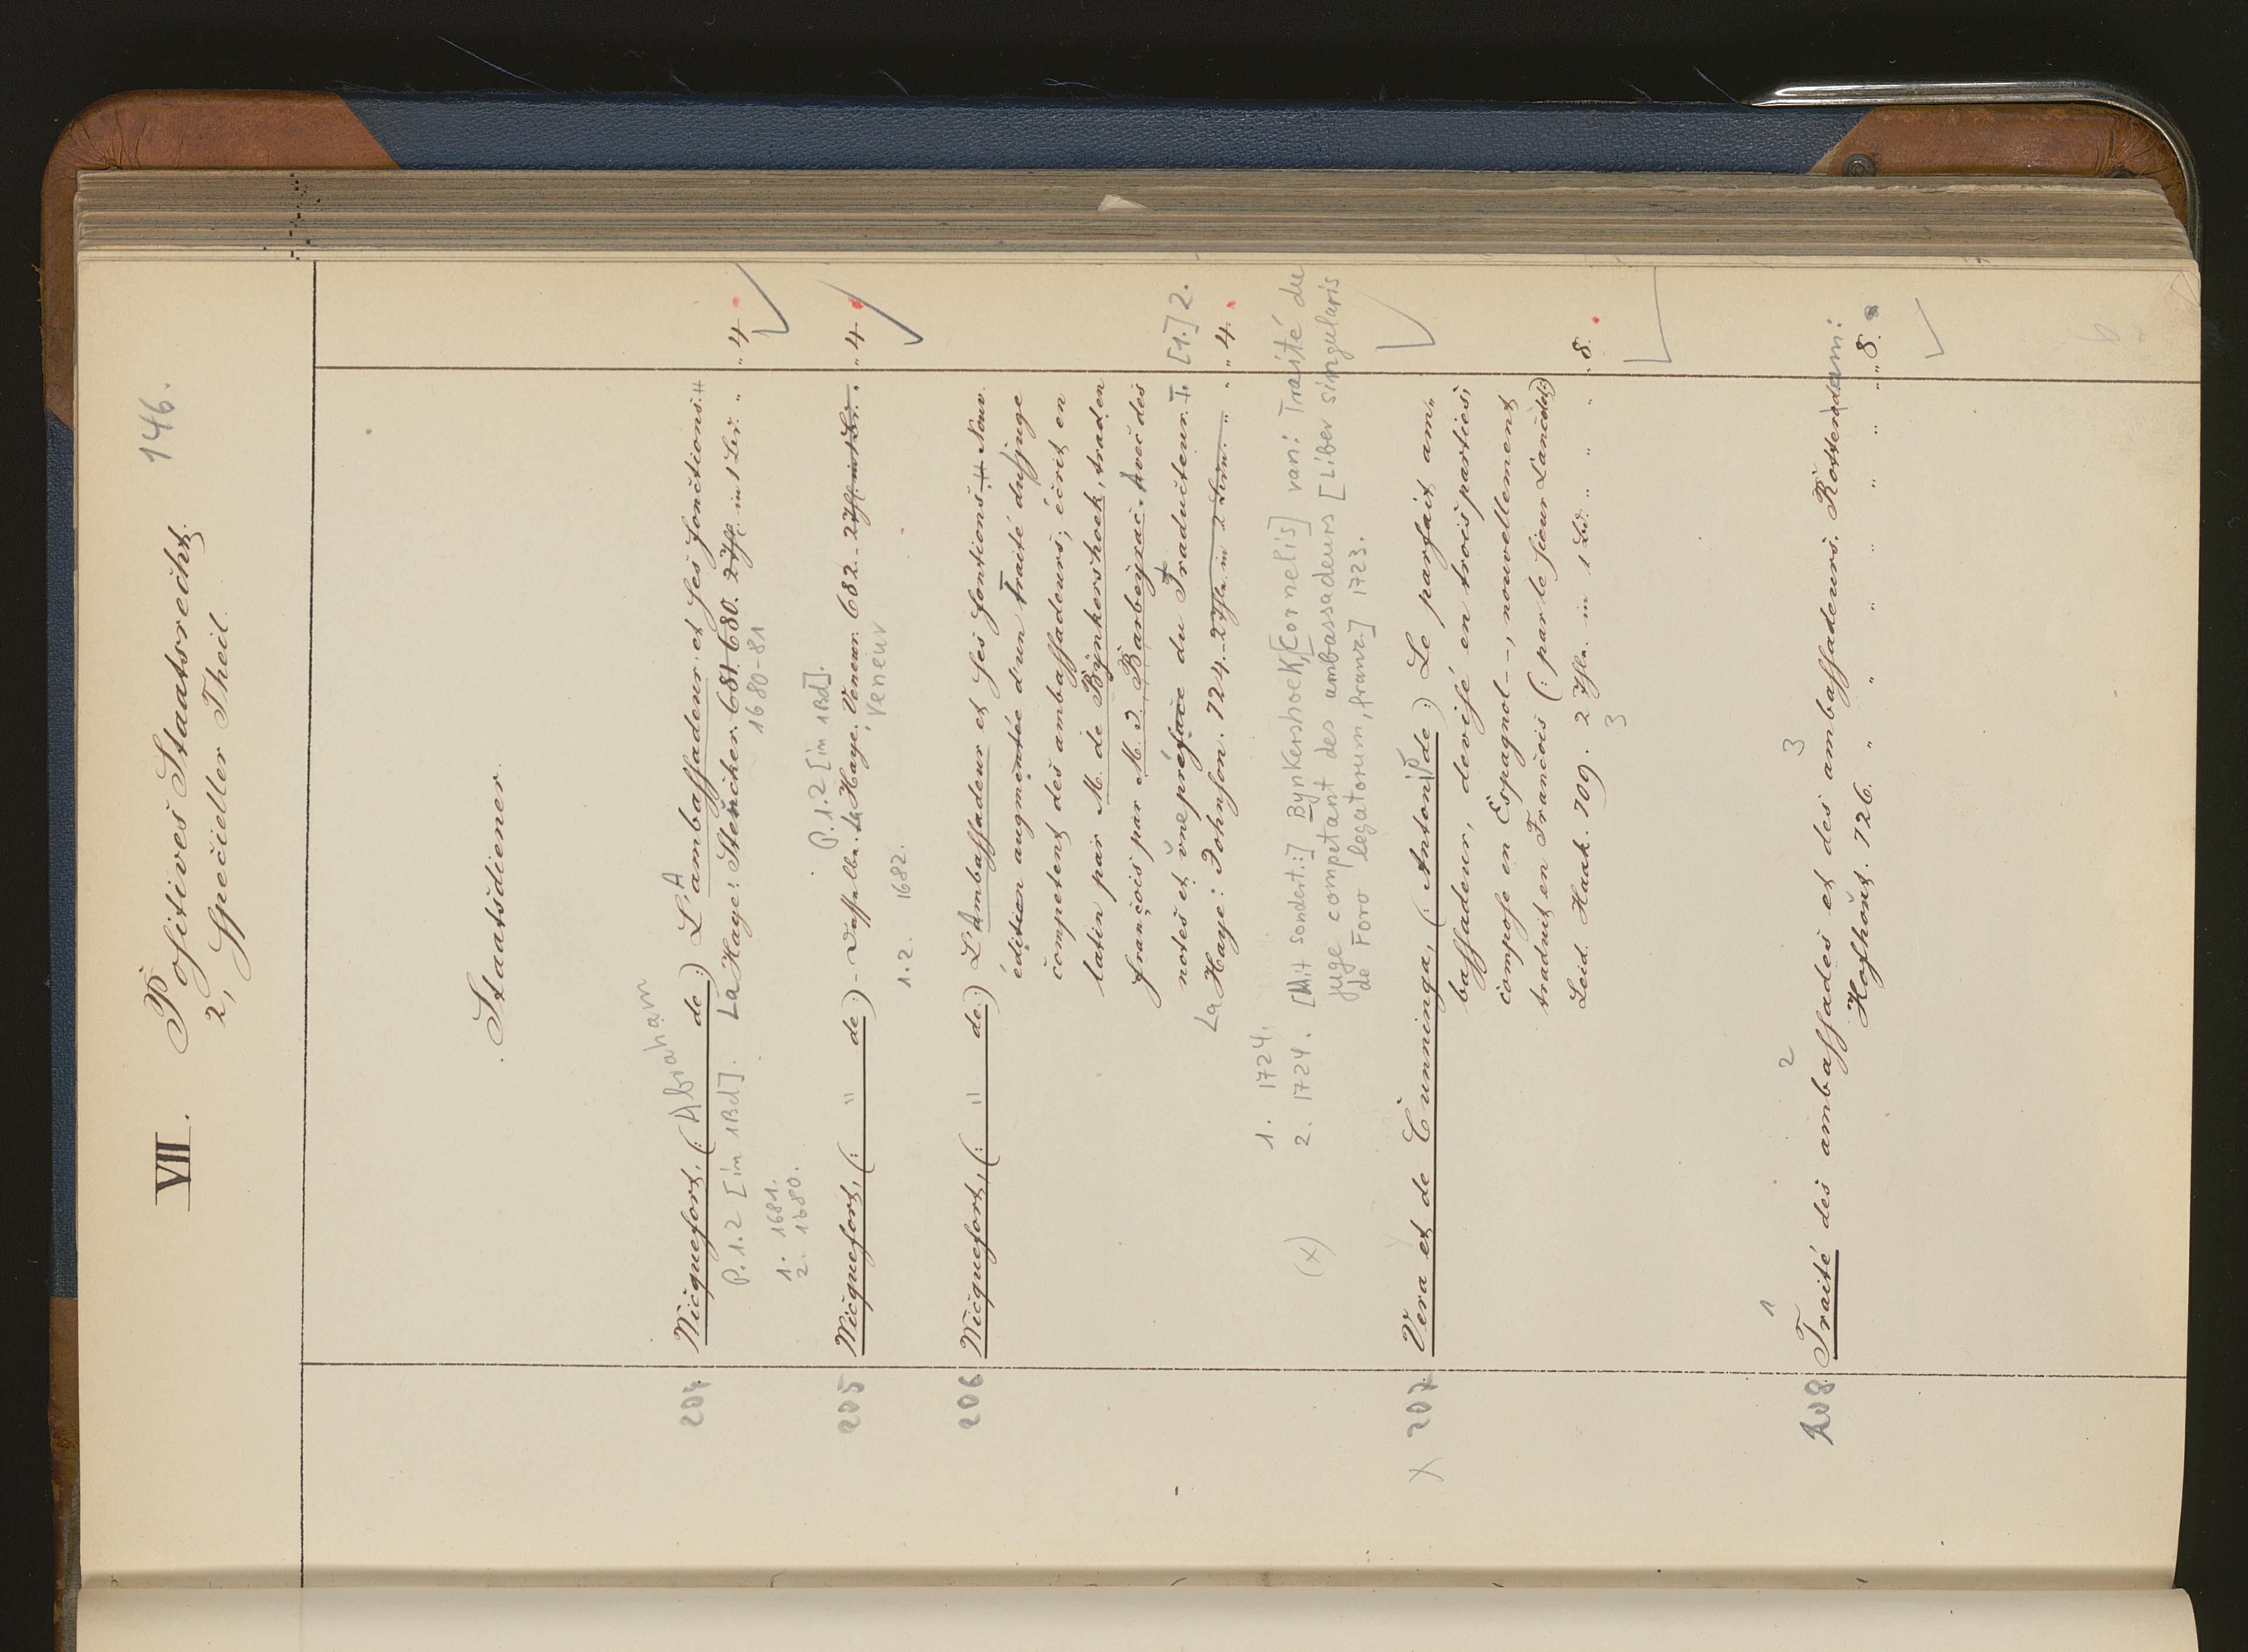 VII. Positives Staatsrecht. 146.
2, Specieller Theil.
Staatsdiener.
204. Wicquefort, (: Abraham de :) L'Ambassadeur et ses fonctions.
P. 1.2 [in 1Bd]. La Haye: Steucker. 681. 680. 2 Thle. in 1 Bd. " " 4.
1680-81
1. 1681.
2. 1680.
P. 1.2 [in 1Bd].
205 Wicquefort, (: " de :) - Dasselbe. La Haye: Veneur. 682. - 2 Thl. in 1 Bd. " " 4.
Veneur
1.2. 1682.
206 Wicquefort, (: " de :) L'Ambassadeur et ses fontions. Nouv.
édition augmentée d'un Traité du juge
competent des ambassadeurs; écrit en
latin par M. de Bynkershoek, trad. en
françois par M. J. Barbeyrac. Avec des
notes et une préface du Traducteur. T. [1.] 2.
La Haye: Johnson. 724. - 2 Thle. in 2 Bdn. " " 4.
1. 1724.
2. 1724. [Mit sondert.:] Bynkershoek, [Cornelis] van: Traité du
juge competant des ambassadeurs [Liber singularis
de Foro legatorum, franz.] 1723.
(x)
x 207. Vera et de Cunninga, (: Antonio de :) Le parfait am-
bassadeur, devisé en trois parties;
compose en Espagnol - -, nouvellement
traduit en Francois (: par le sieur Lancelot :)
Leid. Haak. 709. 2 Thle. in 1 Bd. " " 8.
3
1 2 3
208. Traité des ambassades et des ambassadeurs. Rotterdami:
Hofhout. 726. " " " " " " 8.